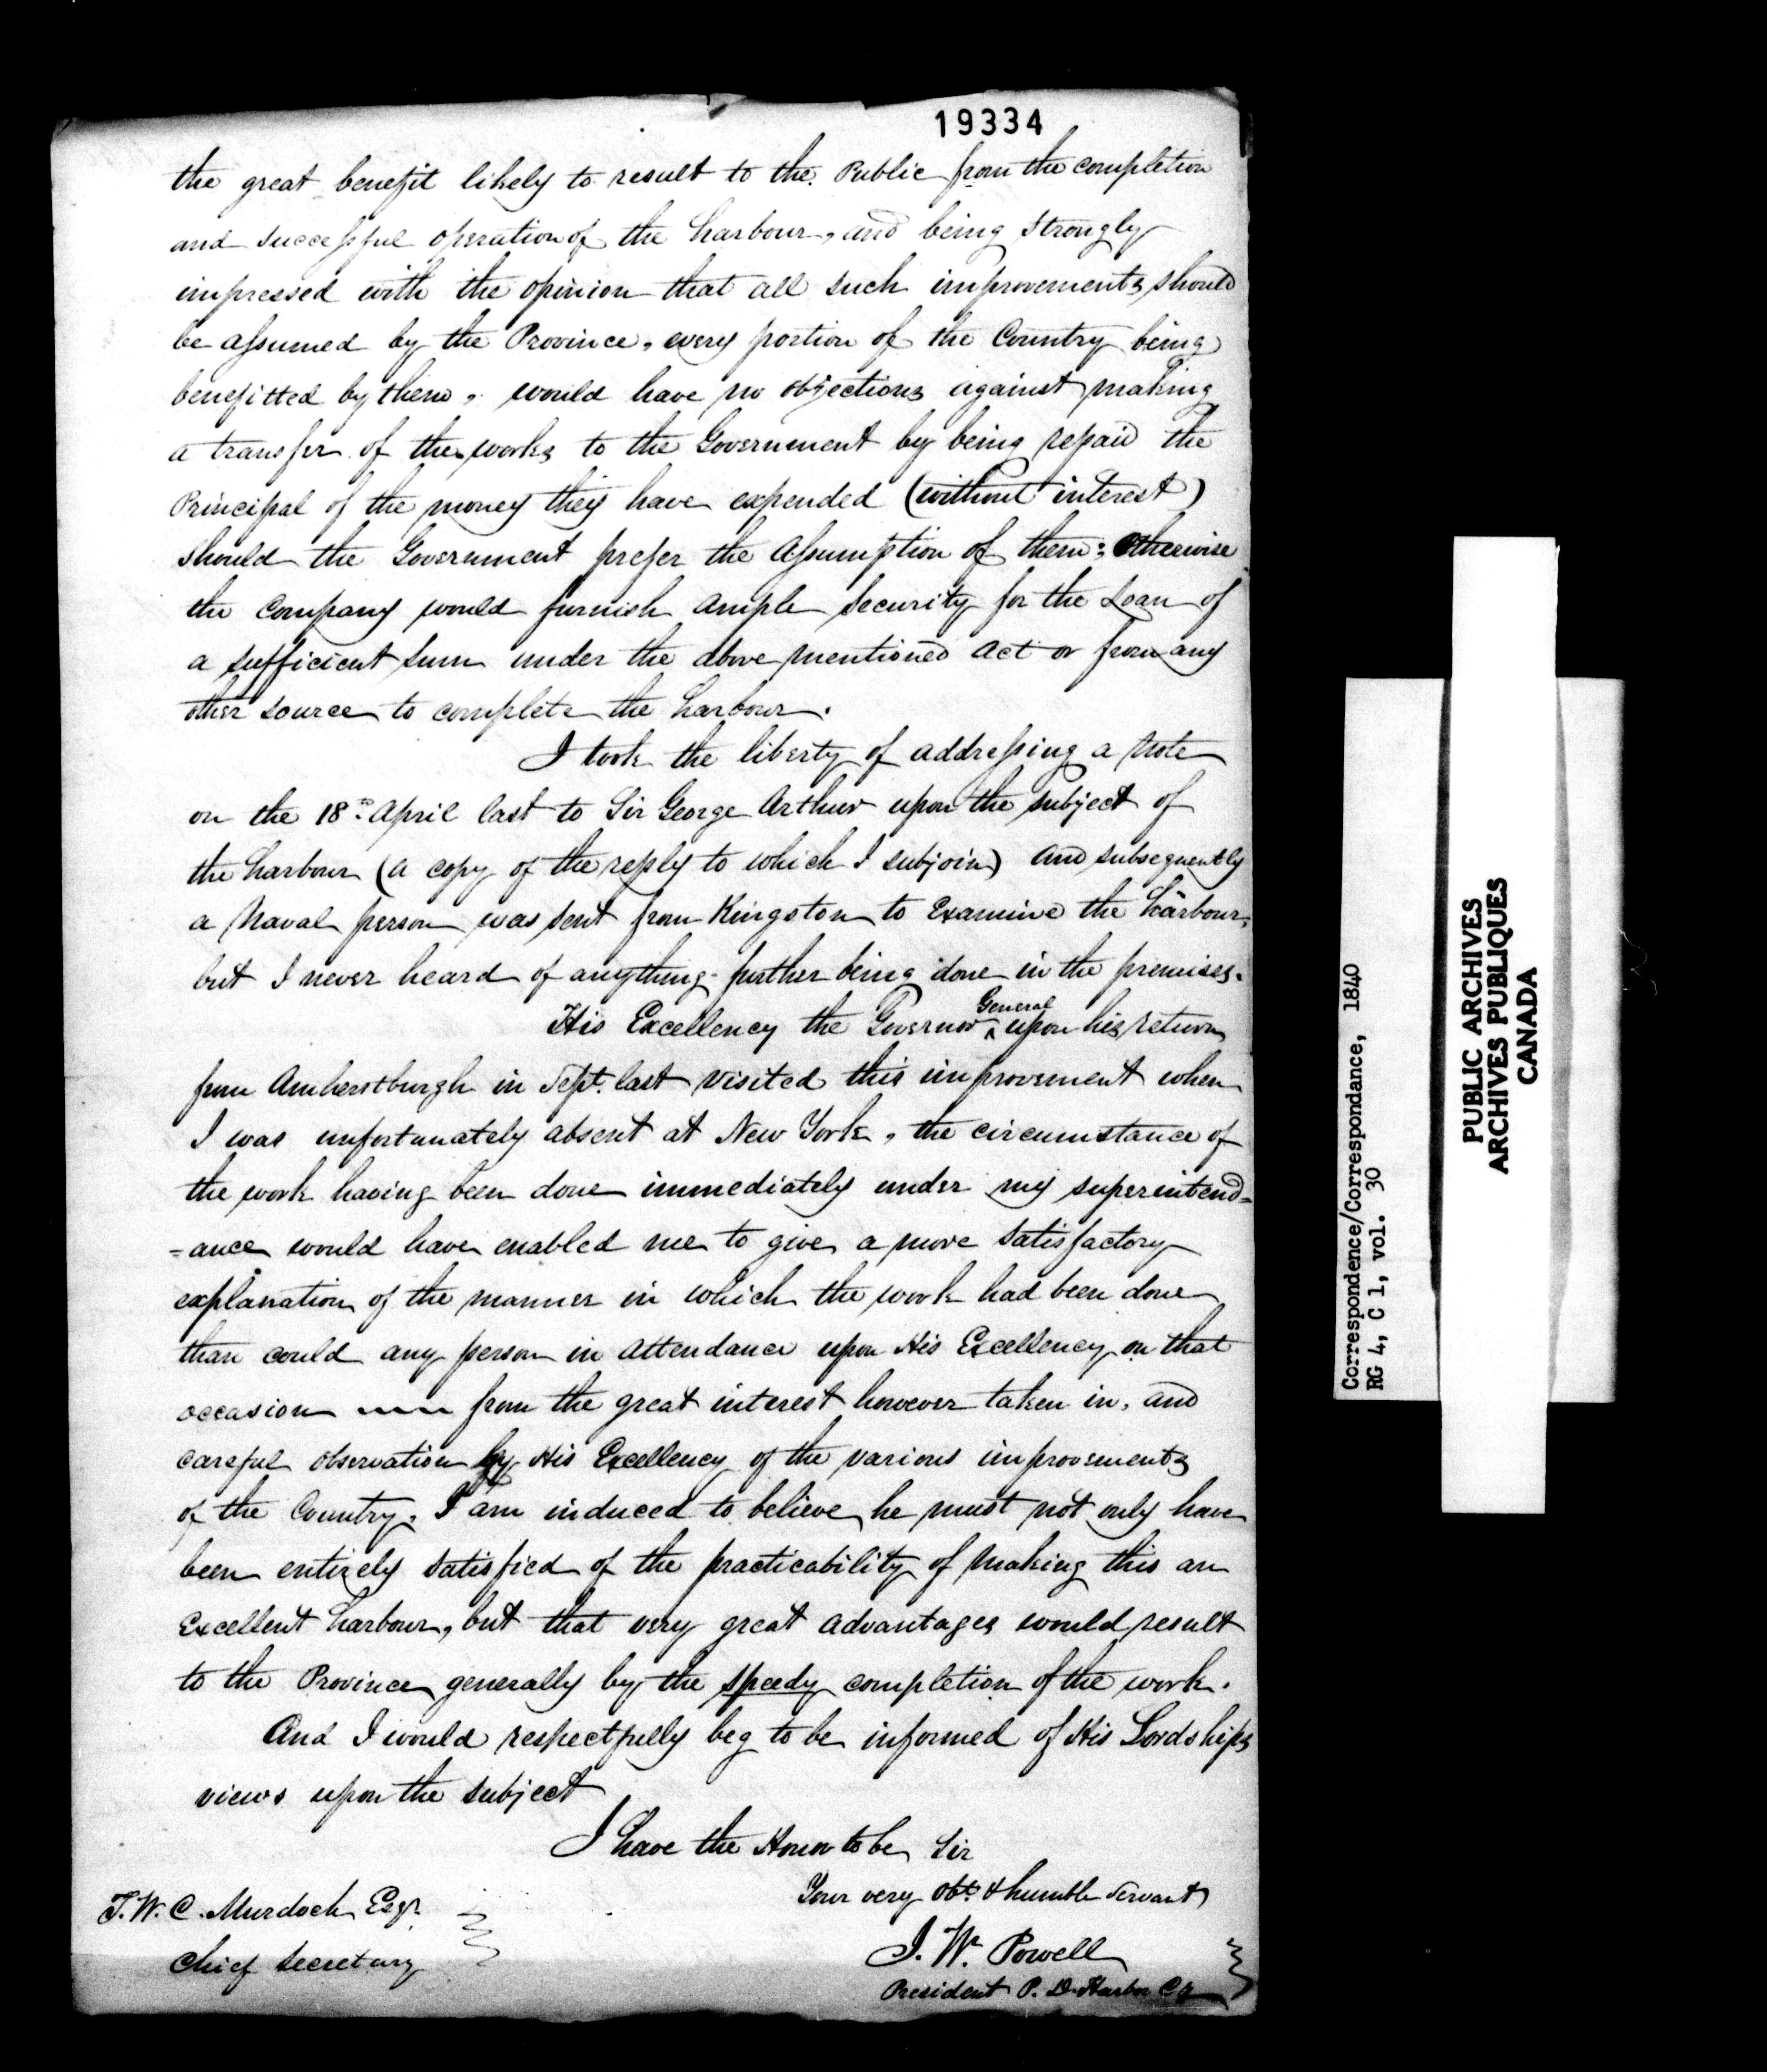 19334
the great benefit likely to result to the Public from the completion
and successful operation of the harbour, and being strongly
impressed with the opinion that all such improvements should
be assumed by the Province, every portion of the Country being
benefitted by them, would have no objections against making
a transfer of the works to the Government by being repaid the
Principal of the money they have expended (without interest)
should the Government prefer the assumption of them: Otherwise
the Company would furnish ample security for the Loan of
a sufficient sum under the above mentioned act or from any
other source to complete the harbour.
I took the liberty of addressing a Note
on the 18th April last to Sir George Arthur upon the subject of
the harbour (a copy of the reply to which I subjoin) and subsequently
a Naval person was sent from Kingston to Examine the harbour,
but I never heard of anything further being done in the premises.
His Excellency the Governor ^ General upon his return
from Amherstburgh in Sept. last visited this improvement when
I was unfortunately absent at New York, the circumstance of
the work having been done immediately under my superintend=
=ance would have enabled me to give a more satisfactory
explanation of the manner in which the work had been done
than could any person in attendance upon His Excellency on that
occasion from the great interest however taken in, and
careful observation by His Excellency of the various improvements
of the Country, I am induced to believe he must not only have
been entirely satisfied of the practicability of making this an
Excellent harbour, but that very great advantages would result
to the Province generally by the speedy completion of the work.
And I would respectfully beg to be informed of His Lordships
views upon the subject
I have the Honor to be Sir
Your very obt. & humble Servant
J. W. Powell
President P. D. Harbor Co
T. W. C. Murdoch Esqr.
Chief Secretary
Correspondence/Correspondance, 1840
RG 4, C 1, vol. 30
PUBLIC ARCHIVES
ARCHIVES PUBLIQUES
CANADA